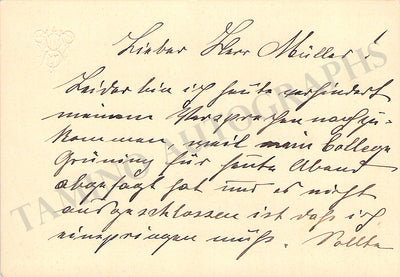 Lieber Herr Müller!
Leider bin ich heute verhindert
meinem Versprechen nachzu-
kommen weil mein College
Grüning für heute Abend
abgesagt hat und es nicht
ausgeschlossen ist daß ich
einspringen muß. Sollte
TAMINO AUTOGRAPHS